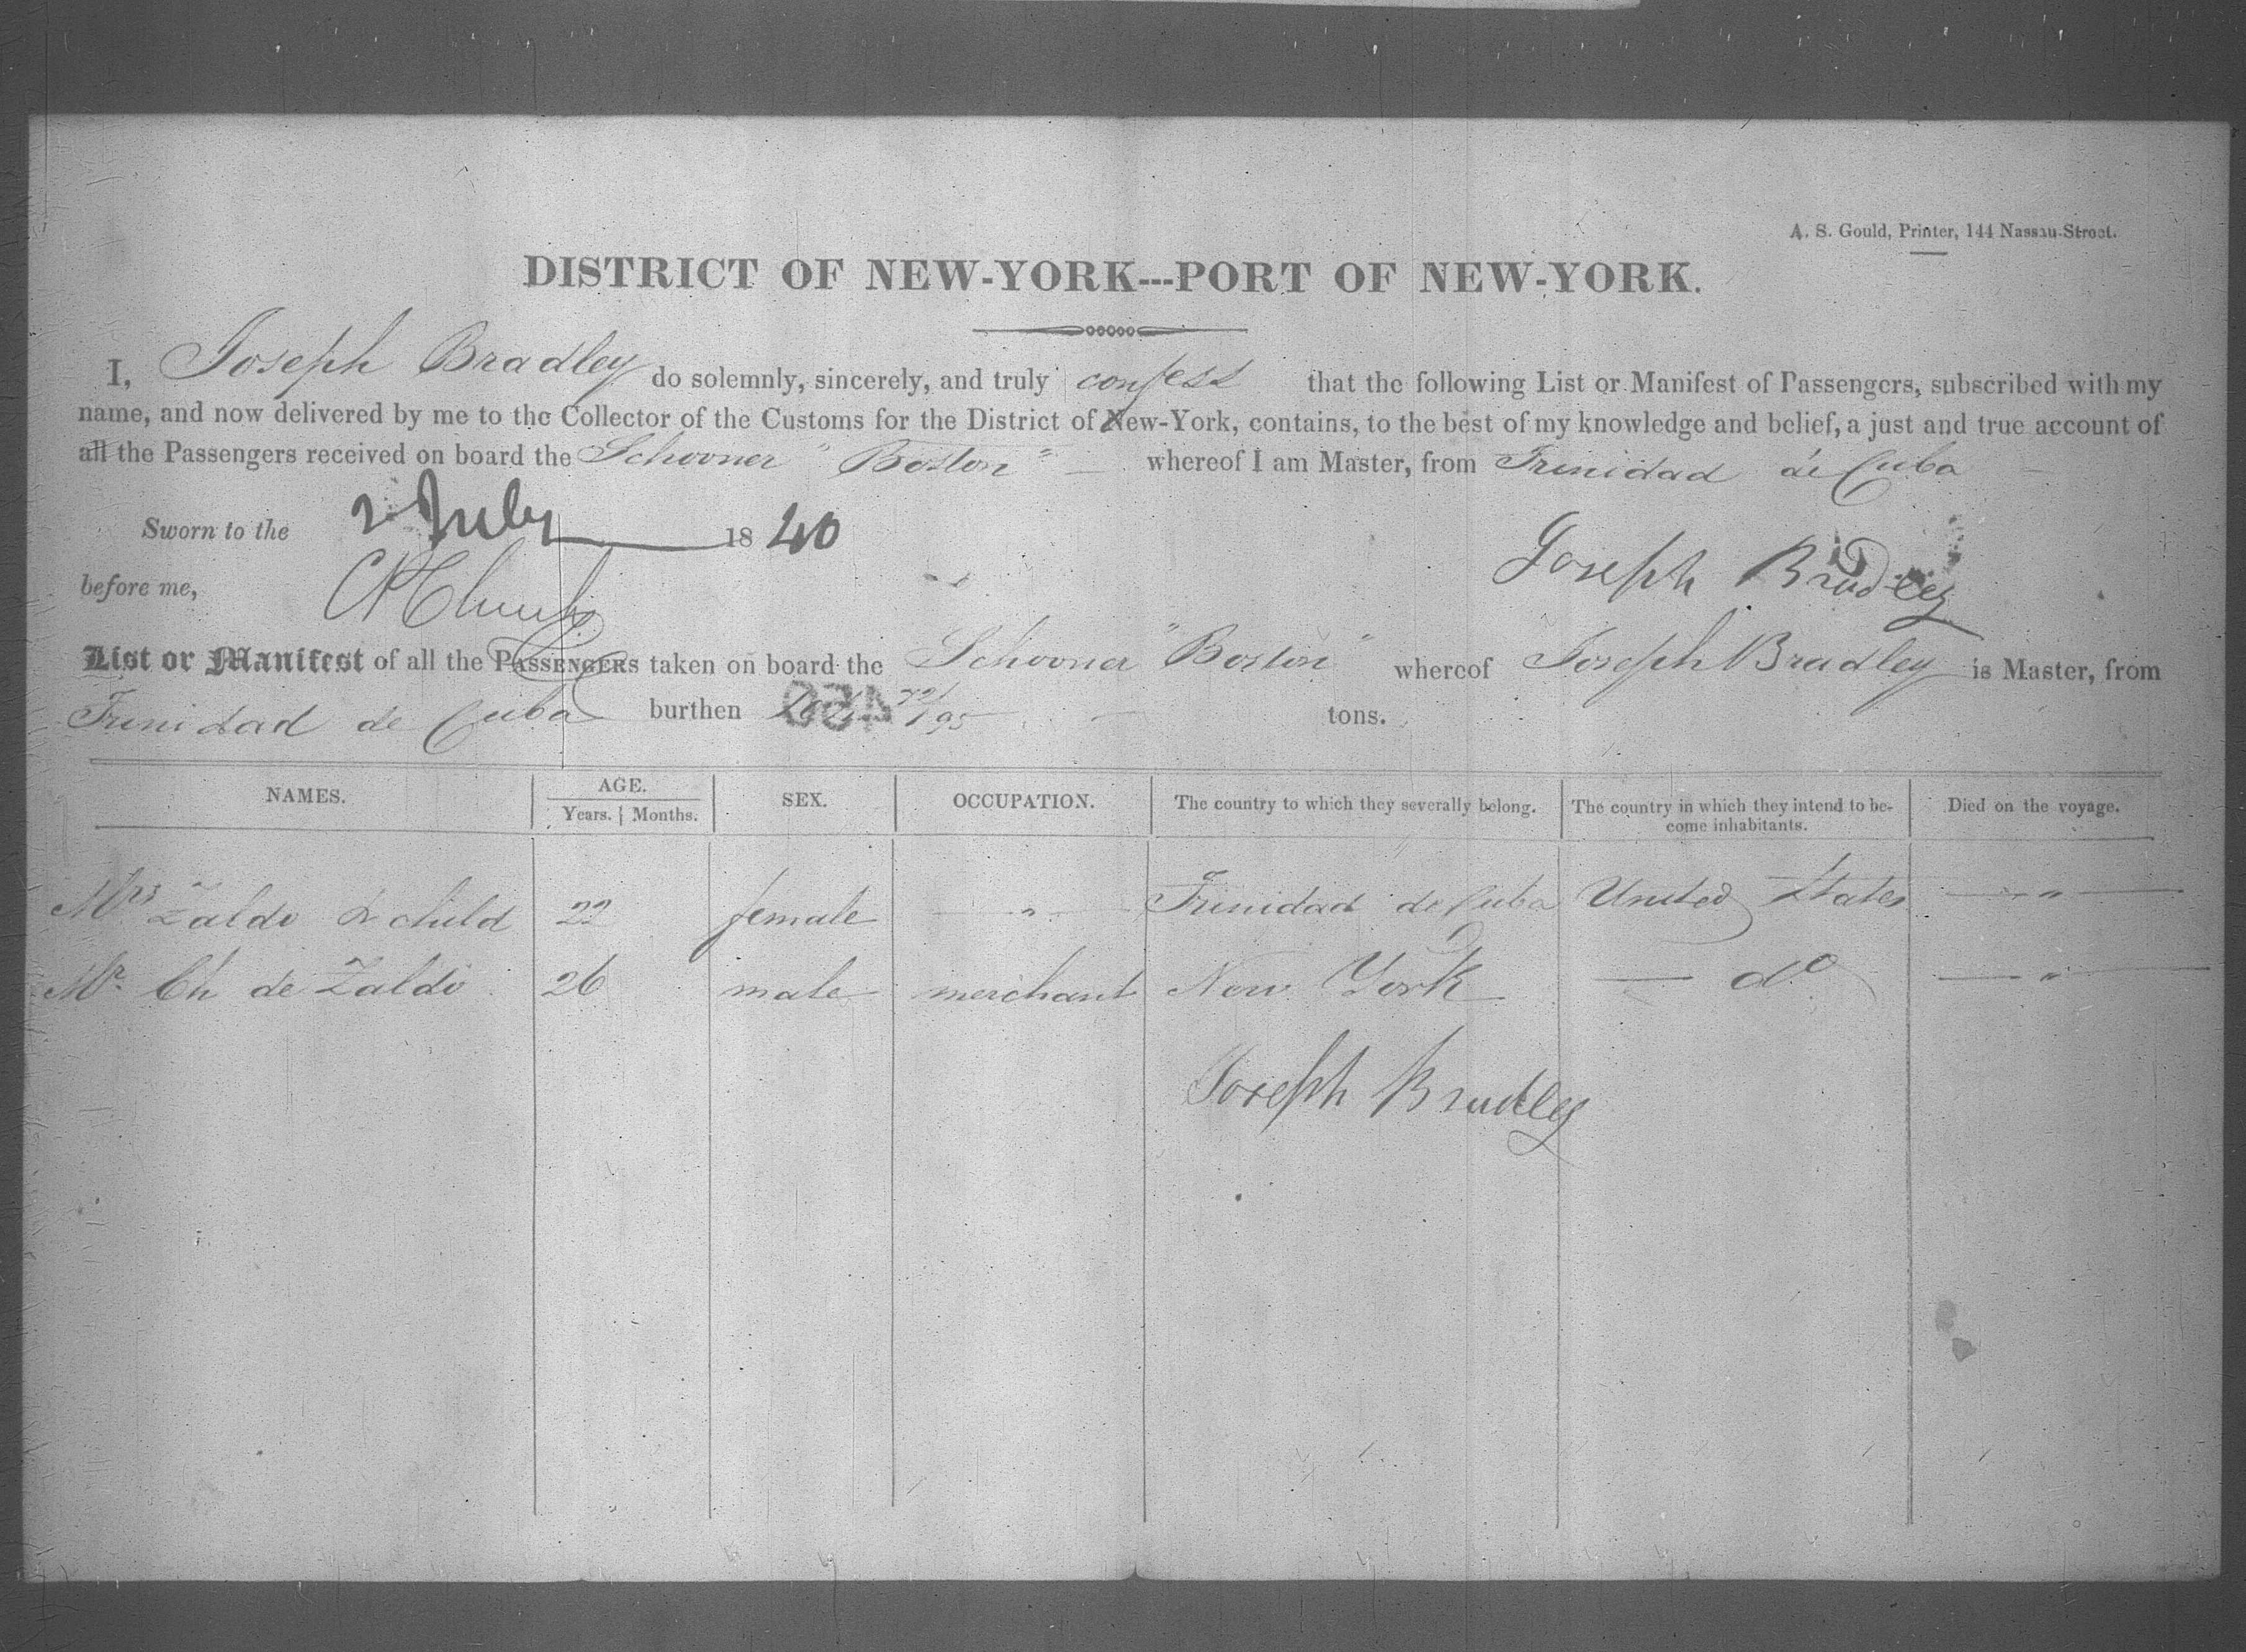 A. S. Gould, Printer, 144 Nassau-Street.
DISTRICT OF NEW-YORK---PORT OF NEW-YORK.
I, Joseph Bradley do solemnly, sincerely, and truly confess that the following List or Manifest of Passengers, subscribed with my
name, and now delivered by me to the Collector of the Customs for the District of New-York, contains, to the best of my knowledge and belief, a just and true account of
all the Passengers received on board the Schooner "Boston" — whereof I am Master, from Trinidad de Cuba —
Sworn to the 2 July 1840
before me, Joseph Bradley
List or Manifest of all the PASSENGERS taken on board the Schooner "Boston" whereof Joseph Bradley is Master, from
Trinidad de Cuba burthen /95 — tons.
NAMES. AGE. SEX. OCCUPATION. The country to which they severally belong. The country in which they intend to be- Died on the voyage.
Years. | Months. come inhabitants.
Mrs Zaldo & child 22 female — " — Trinidad de Cuba United States — " —
Mr. Ch de Zaldo 26 male merchant New York — do — " —
Joseph Bradley